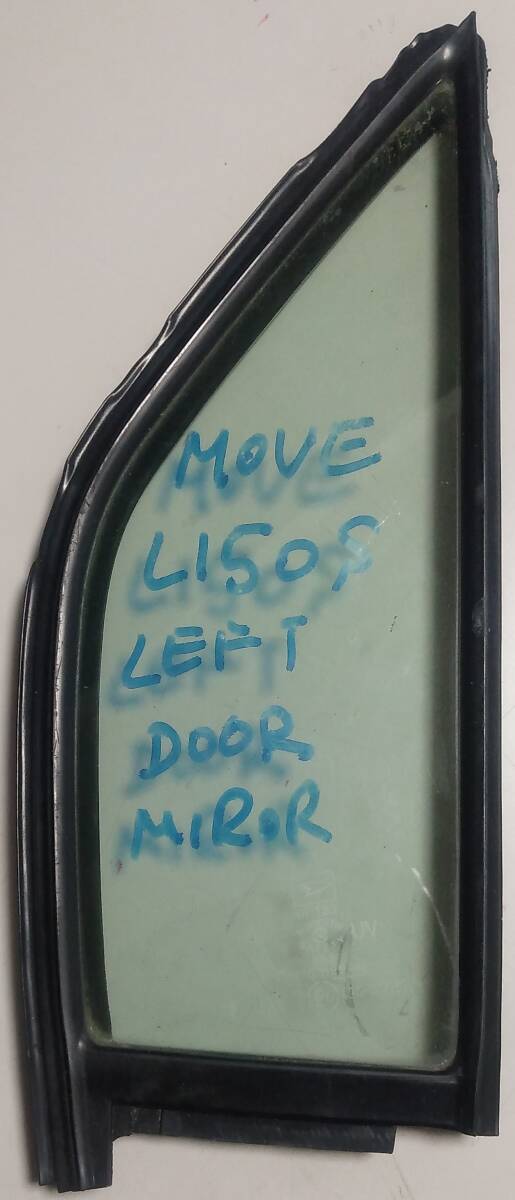 MOVE
L150S
LEFT
DOOR
MIROR